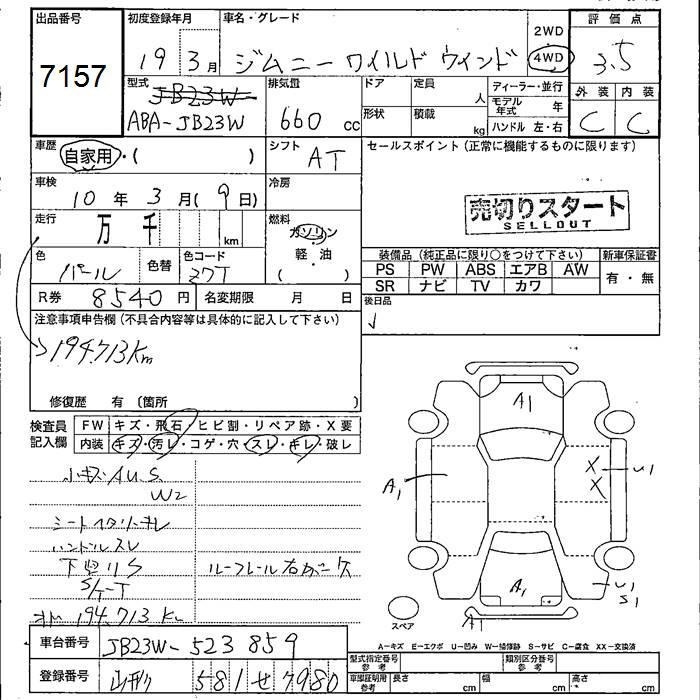 出品番号
7157
初度登録年月
19年 3月
車名・グレード
ジムニー ワイルド ウインド
2WD
4WD
評価点
3.5
外装 内装
C C
型式
JB23W
ABA-JB23W
排気量
660 cc
ドア
定員 人
形状
積載 kg
ディーラー・並行
モデル年式 年
ハンドル 左・右
車歴
自家用・( )
シフト
AT
セールスポイント (正常に機能するものに限ります)
車検
10年 3月 (9日)
冷房
売切りスタート
SELLOUT
走行
万 千 km
燃料
ガソリン
軽・油
( )
色
パール
色替
色コード
Z7T
装備品 (純正品に限り○をつけて下さい)
新車保証書
PS PW ABS エアB AW
有・無
SR ナビ TV カワ
R券 8540円
名変期限 月 日
後日品
注意事項申告欄 (不具合内容等は具体的に記入して下さい)
194,713Km
修復歴 有 (箇所 )
検査員
記入欄
FW キズ・飛石・ヒビ割・リペア跡・X要
内装 キズ・汚レ・コゲ・穴・スレ・キレ・破レ
小キズ A U.S.
W2
シート ヘタリ・キレ
ハンドルスレ
下廻り S
ルーフレール右が一欠
S/T-T
194,713 Km
A1
A1
X
X
U1
A1
U1
S1
A1
スペア
A-キズ E-エクボ U-凹み W-補修跡 S-サビ C-腐食 XX-交換済
車台番号
JB23W-523859
登録番号
581 せ 7980
型式指定番号
参考
類別区分番号
参考
車庫証明用
参考
長さ cm
幅 cm
高さ cm